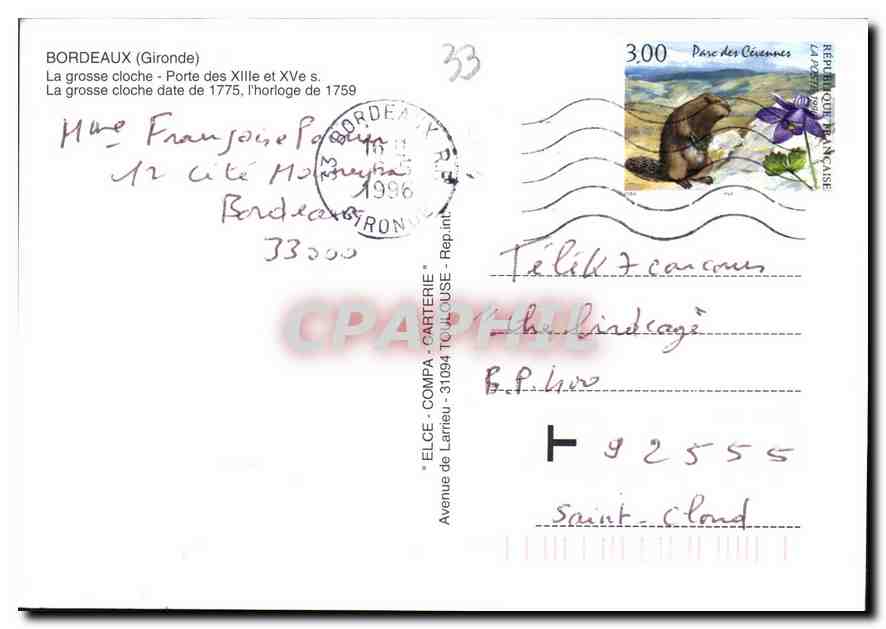 BORDEAUX (Gironde)
La grosse cloche - Porte des XIIIe et XVe s.
La grosse cloche date de 1775, l'horloge de 1759
33
3,00 Parc des Cévennes
RÉPUBLIQUE FRANÇAISE
LA POSTE 1996
33 BORDEAUX R.P.
1996
GIRONDE
Mme Françoise
12 cité
Bordeaux
33000
CPAPHIL
" ELCE - COMPA - CARTERIE "
Avenue de Larrieu - 31094 TOULOUSE - Rep.int.
TéléK7 concours
"the birdcage"
B.P. 400
T 92555
Saint-Cloud